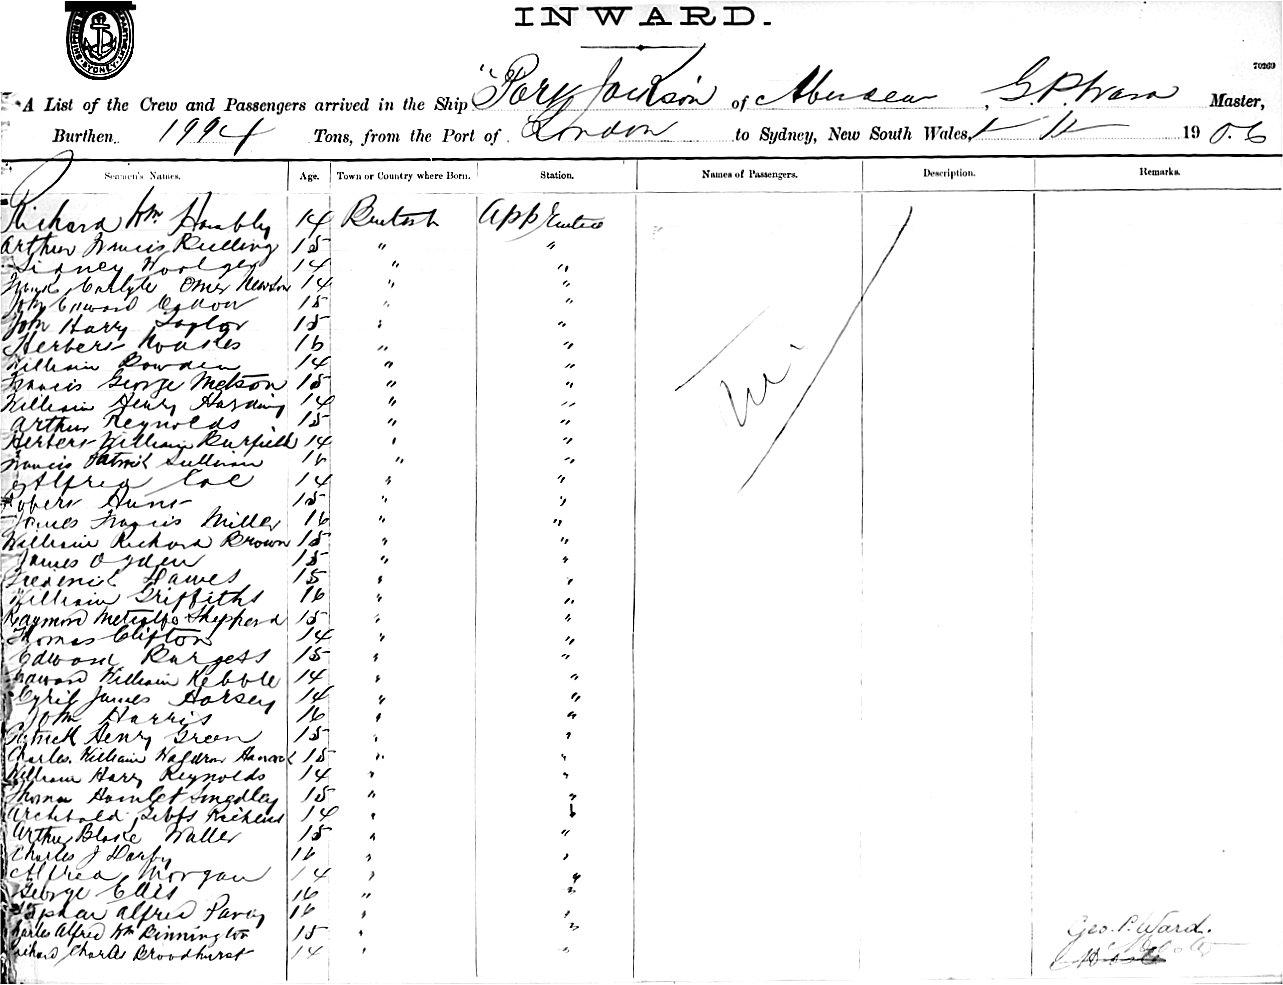 INWARD.
SHIPPING DEPARTMENT SYDNEY
70269
A List of the Crew and Passengers arrived in the Ship "Port Jackson of Aberdeen G. P. Ward Master,
Burthen 1994 Tons, from the Port of London to Sydney, New South Wales, 1906
Seamen's Names. Age. Town or Country where Born. Station. Names of Passengers. Description. Remarks.
Richard Wm Hambly 14 British Apprentice
Arthur Francis Rudling 15 " "
Sidney Woolger 14 " "
Frank Carlyle Omer Newson 14 " "
John Edward 15 " "
John Harry Taylor 15 " "
Herbert Noakes 16 " "
William Bowden 14 " "
Francis George Metson 15 " "
William Henry Harding 14 " "
Arthur Reynolds 15 " "
Herbert William Burfield 14 " "
Francis Patrick Sullivan 16 " "
Alfred Cole 14 " "
Robert Hunt 15 " "
James Francis Miller 16 " "
William Richard Brown 15 " "
James Ogden 15 " "
Frederick Hawes 15 " "
William Griffiths 16 " "
Raymond Metcalfe Shepherd 15 " "
Thomas Clifton 14 " "
Edward Burgess 15 " "
Edward William Kebble 14 " "
Cyril James Horsey 14 " "
John Harris 16 " "
Patrick Henry Green 15 " "
Charles William Waldron Hancock 15 " "
William Harry Reynolds 14 " "
Thomas Hamlet Smedley 15 " "
Archibald Gibbs Richens 14 " "
Arthur Blake Waller 15 " "
Charles J Darby 16 " "
Alfred Morgan 14 " "
George Ellis 16 " "
Alfred 16 " "
Charles Alfred Wm Binnington 15 " "
Richard Charles Broodhurst 14 " "
Geo. P. Ward.